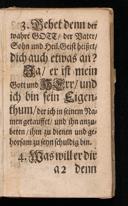 3. Gehet denn der
wahre GOTT / der Vater /
Sohn und Heil. Geist heisset /
dich auch etwas an?
Ja / er ist mein
Gott und HErr / und
ich bin sein Eigen-
thum / der ich in seinem Na-
men getauffet / und ihn anzu-
beten / ihm zu dienen und ge-
horsam zu seyn schuldig bin.
4. Was will er dir
a 2 denn